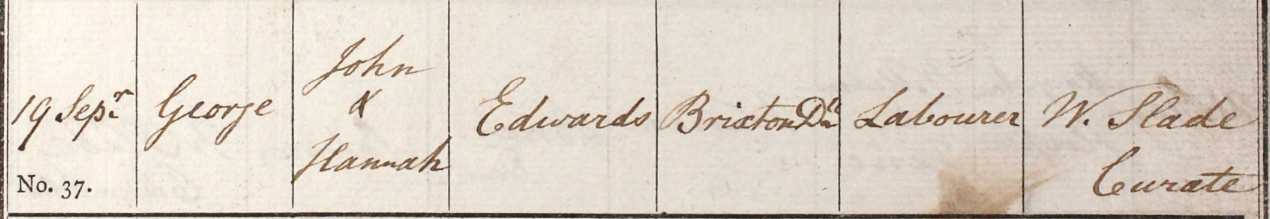 19 Sepr
No. 37.
George
John
&
Hannah
Edwards
Brixton Dl
Labourer
W. Slade
Curate